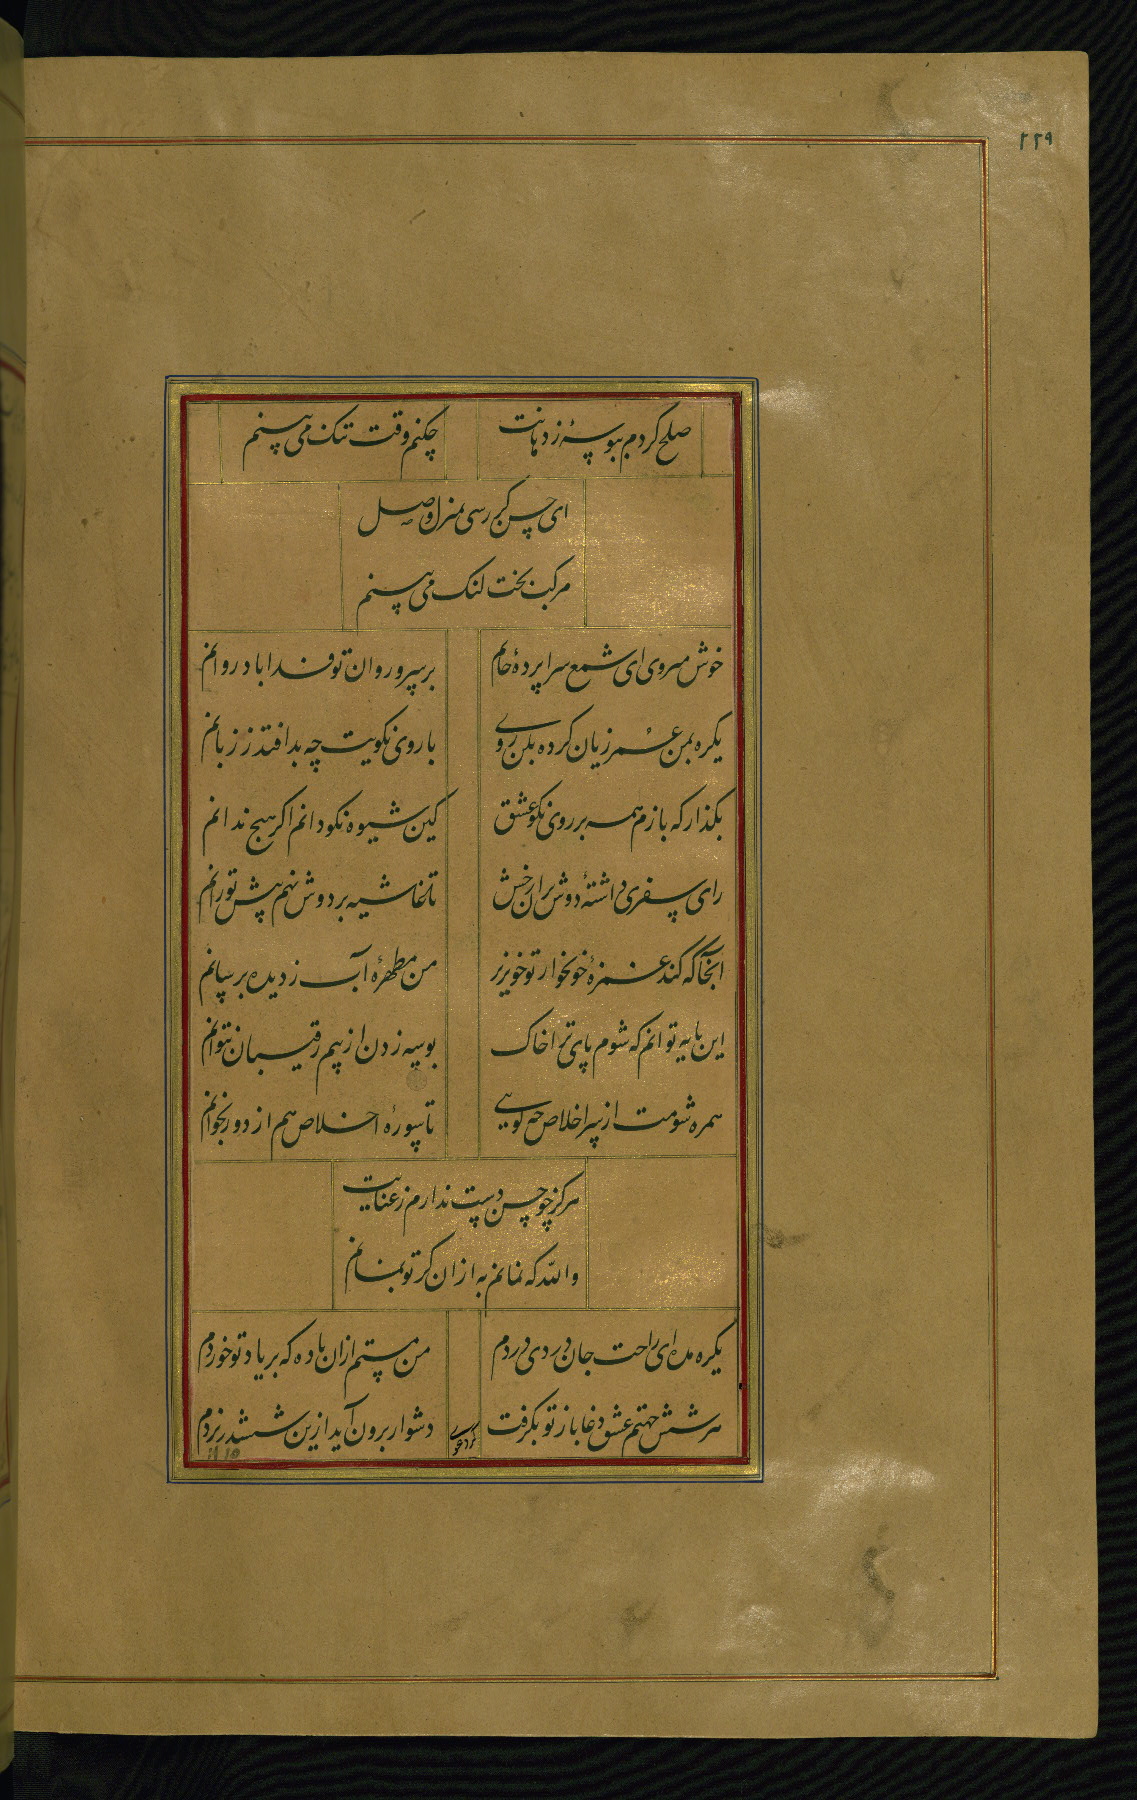 ۲۲۹
صلح کردم ببوسهٔ ز دهانت چکنم وقت تنک می بینم
ای حسن کر رسی بمنزل وصل
مرکب بخت لنک می بینم
خوش میروی ای شمع سراپردهٔ جانم بر سرو روان تو فدا باد روانم
یکره بمن عمر زیان کرده بکن روی با روی نکویت چه بد افتد ز زبانم
بکذار که بازم همه بر روی نکو عشق کین شیوه نکو دانم اکر هیچ ندانم
رای سفری داشتهٔ دوش بران رخش تا غاشیه بر دوش نهم پیش تو رانم
آنجا که کند غمزهٔ خونخوار تو خونریز من مطهرهٔ آب ز دیده برسانم
این مایه توانم که شوم پای ترا خاک بوسه زدن از بیم رقیبان نتوانم
همره شومت از سر اخلاص چه کویی تا سورهٔ اخلاص هم از دور بخوانم
هرکز چو حسن دست ندارم ز عنایت
والله که نمانم به ازان کر تو بمانم
یکره مده ای راحت جان دردی دردم من مستم ازان باده که بر یاد تو خوردم
هر شش جهتم عشق دغا باز تو بکرفت دشوار برون آید ازین ششدر نردم